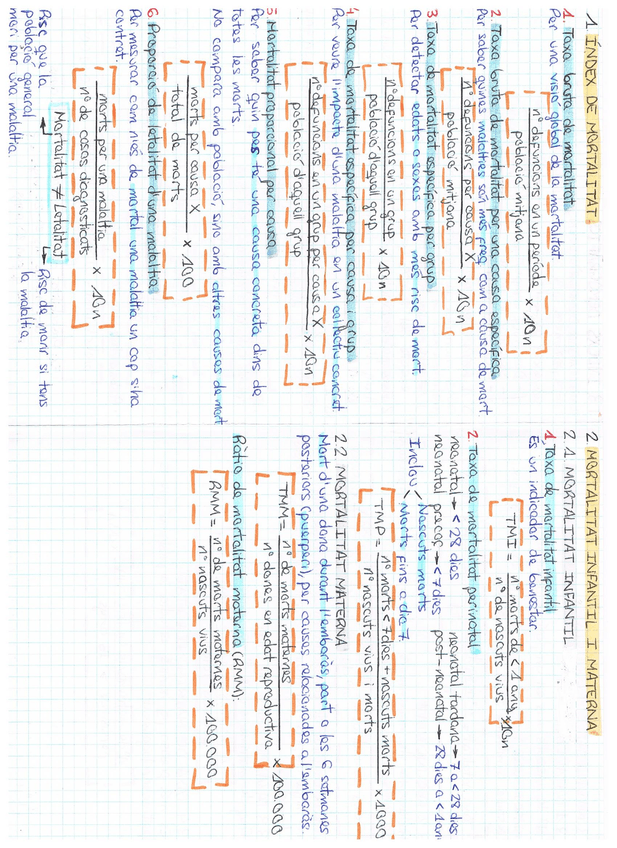 1 ÍNDEX DE MORTALITAT
1. Taxa bruta de mortalitat
Per una visió global de la mortalitat
nº defuncions en un període
població mitjana
x 10n
2. Taxa bruta de mortalitat per una causa específica
Per saber quines malalties són més freq com a causa de mort
nº defuncions per causa X
població mitjana
x 10n
3 Taxa de mortalitat específica per grup
Per detectar edats o sexes amb més risc de mort.
nº defuncions en un grup
població d'aquell grup
x 10n
4. Taxa de mortalitat específica per causa i grup
Per veure l'impacte d'una malaltia en un col·lectiu concret
nº defuncions en un grup per causa X
població d'aquell grup
x 10n
5 Mortalitat proporcional per causa
Per saber quin pes té una causa concreta dins de
totes les morts
No compara amb població, sinó amb altres causes de mort
morts per causa X
total de morts
x 100
6. Proporció de letalitat d'una malaltia
Per mesurar com n'és de mortal una malaltia un cop s'ha
contret.
morts per una malaltia
nº de casos diagnosticats
x 10n
Mortalitat ≠ Letalitat
Risc que la
població general
mori per una malaltia.
Risc de morir si tens
la malaltia.
2 MORTALITAT INFANTIL I MATERNA
2.1. MORTALITAT INFANTIL
1. Taxa de mortalitat infantil
És un indicador de benestar.
TMI = nº morts de < 1 any
nº de nascuts vius
x 10n
2. Taxa de mortalitat perinatal
neonatal → < 28 dies neonatal tardana → 7 a < 28 dies
neonatal precoç → < 7 dies post-neonatal → 28 dies a < 1 an
Inclou < Nascuts morts
Morts fins a dia 7
TMP = nº morts < 7 dies + nascuts morts
nº nascuts vius i morts
x 1000
2.2 MORTALITAT MATERNA
Mort d'una dona durant l'embaràs, part o les 6 setmanes
posteriors (puerperi), per causes relacionades a l'embaràs.
TMM = nº de morts maternes
nº dones en edat reproductiva
x 100 000
Ràtio de mortalitat materna (RMM):
RMM = nº de morts maternes
nº nascuts vius
x 100 000